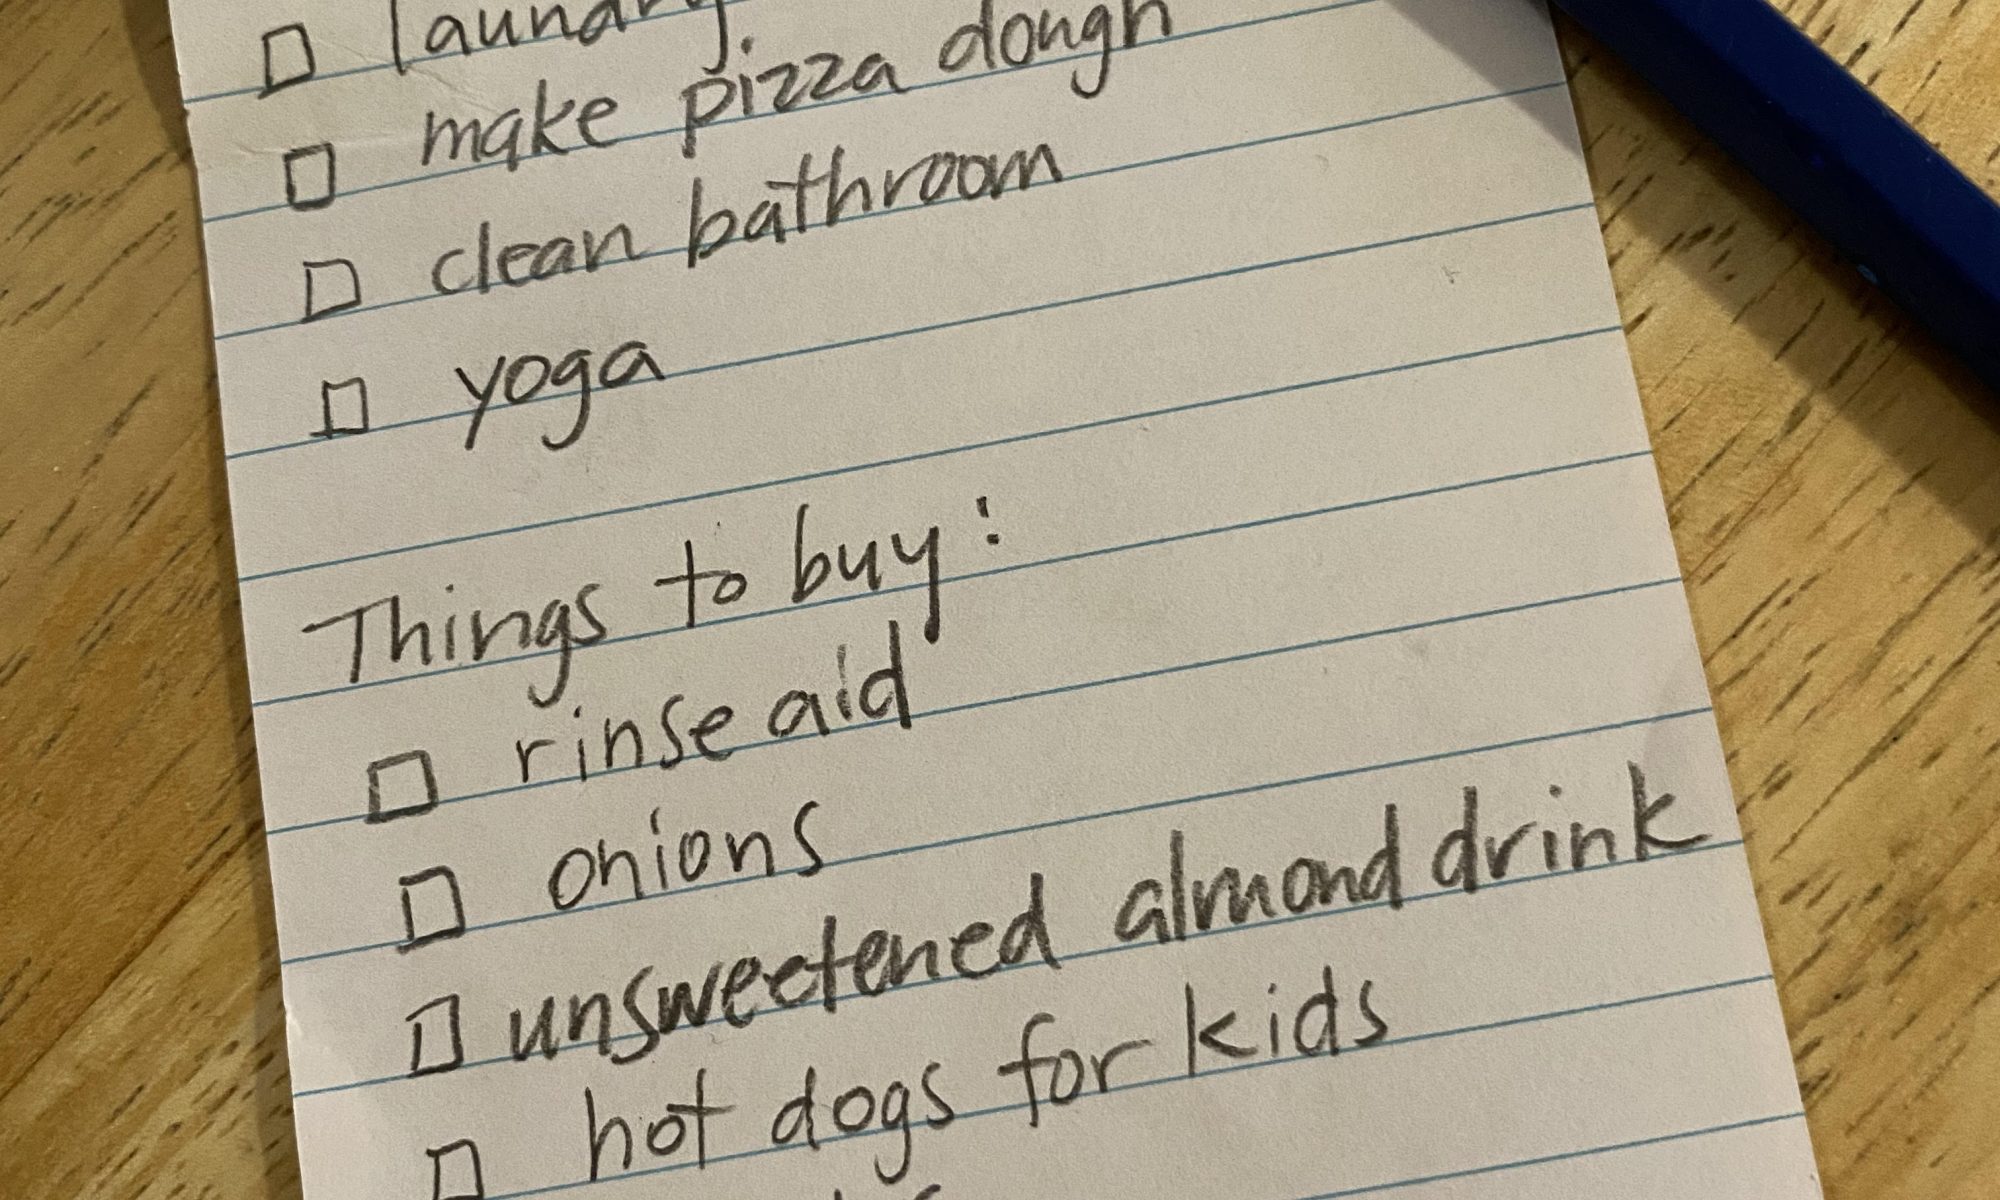 ☐ laundry
☐ make pizza dough
☐ clean bathroom
☐ yoga
Things to buy:
☐ rinse aid
☐ onions
☐ unsweetened almond drink
☐ hot dogs for kids